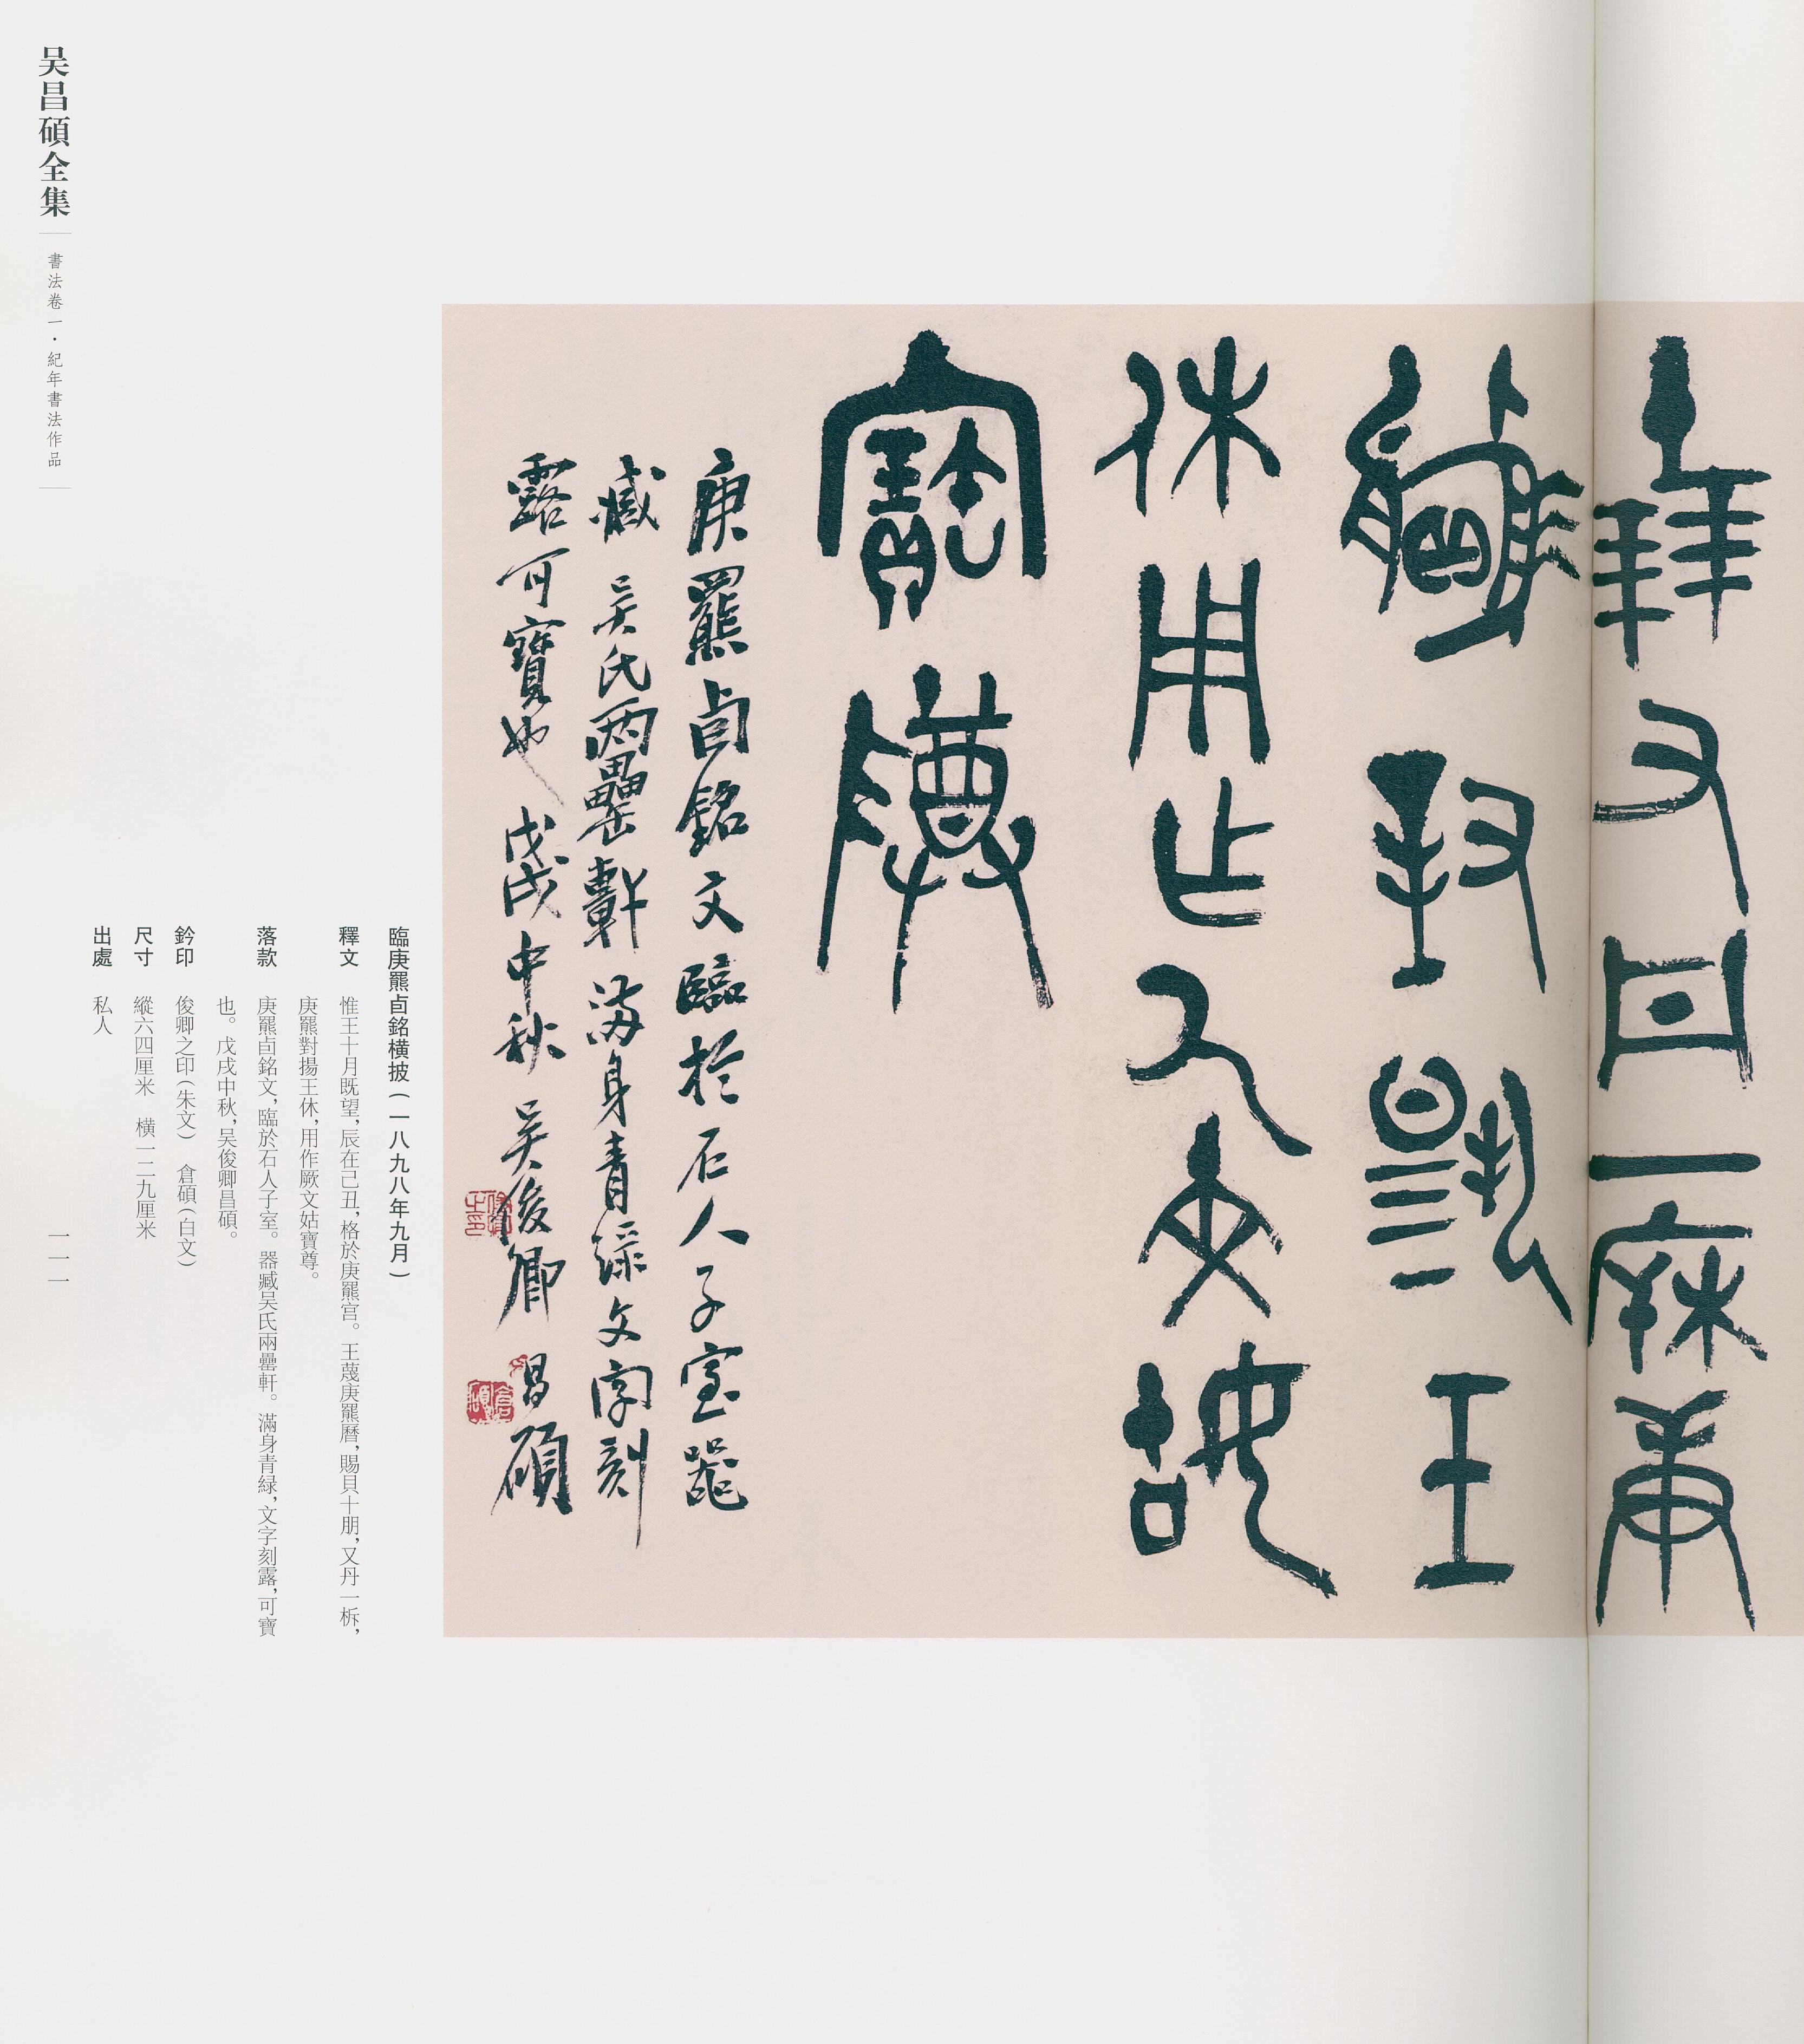 朋又丹一柝庚
羆對揚王
休用作厥文姑
寶尊
庚羆卣銘文臨於石人子室器
臧吳氏兩罍軒滿身青綠文字刻
露可寶也戊戌中秋吳俊卿昌碩
臨庚羆卣銘橫披(一八九八年九月)
釋文 惟王十月既望,辰在己丑,格於庚羆宫。王蔑庚羆曆,賜貝十朋,又丹一柝,
庚羆對揚王休,用作厥文姑寶尊。
落款 庚羆卣銘文,臨於石人子室。器臧吴氏兩罍軒。滿身青緑,文字刻露,可寶
也。戊戌中秋,吴俊卿昌碩。
鈐印 俊卿之印(朱文) 倉碩(白文)
尺寸 縱六四厘米 橫一二九厘米
出處 私人
吴昌碩全集
書法卷一·紀年書法作品
一一一